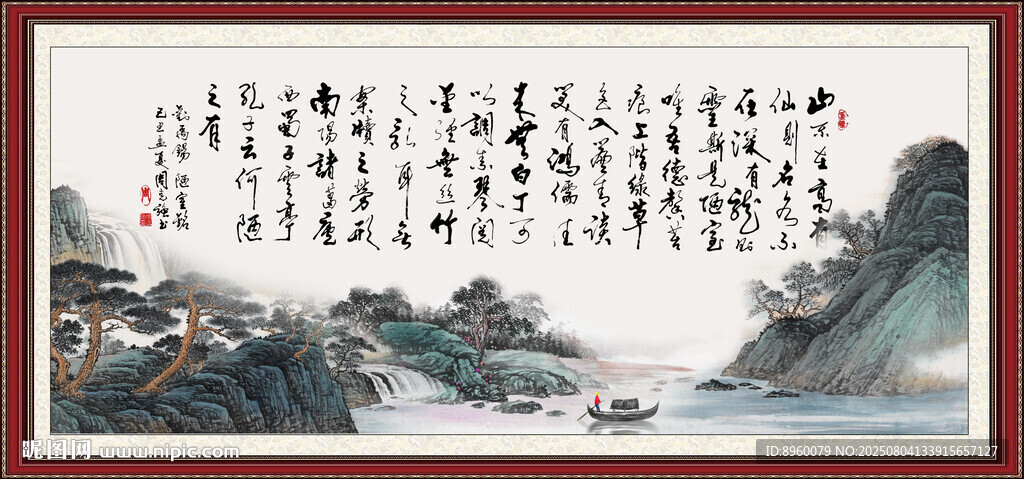 山不在高有
仙則名水不
在深有龍則
靈斯是陋室
唯吾德馨苔
痕上階綠草
色入簾青談
笑有鴻儒往
來無白丁可
以調素琴閱
金經無絲竹
之亂耳無
案牘之勞形
南陽諸葛廬
西蜀子雲亭
孔子云何陋
之有
劉禹錫 陋室銘
己丑孟夏周書
昵图网 www.nipic.com
ID:8960079 NO:20250804133915657127